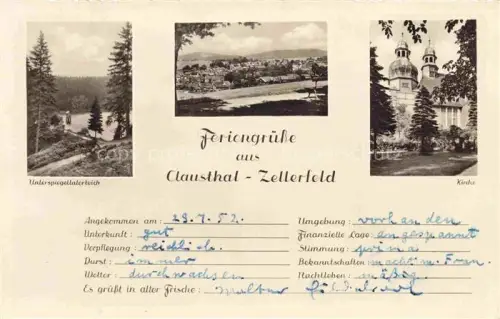 Unterspiegeltalerteich
Kirche
Feriengrüße
aus
Clausthal - Zellerfeld
Angekommen am: 23.7.52.
Unterkunft: gut
Verpflegung: reichlich
Durst: immer
Wetter: durchwachsen
Es grüßt in alter Frische: Walter
Umgebung: vorhanden
Finanzielle Lage: angespannt
Stimmung: prima
Bekanntschaften: macht m. Frau.
Nachtleben: mäßig